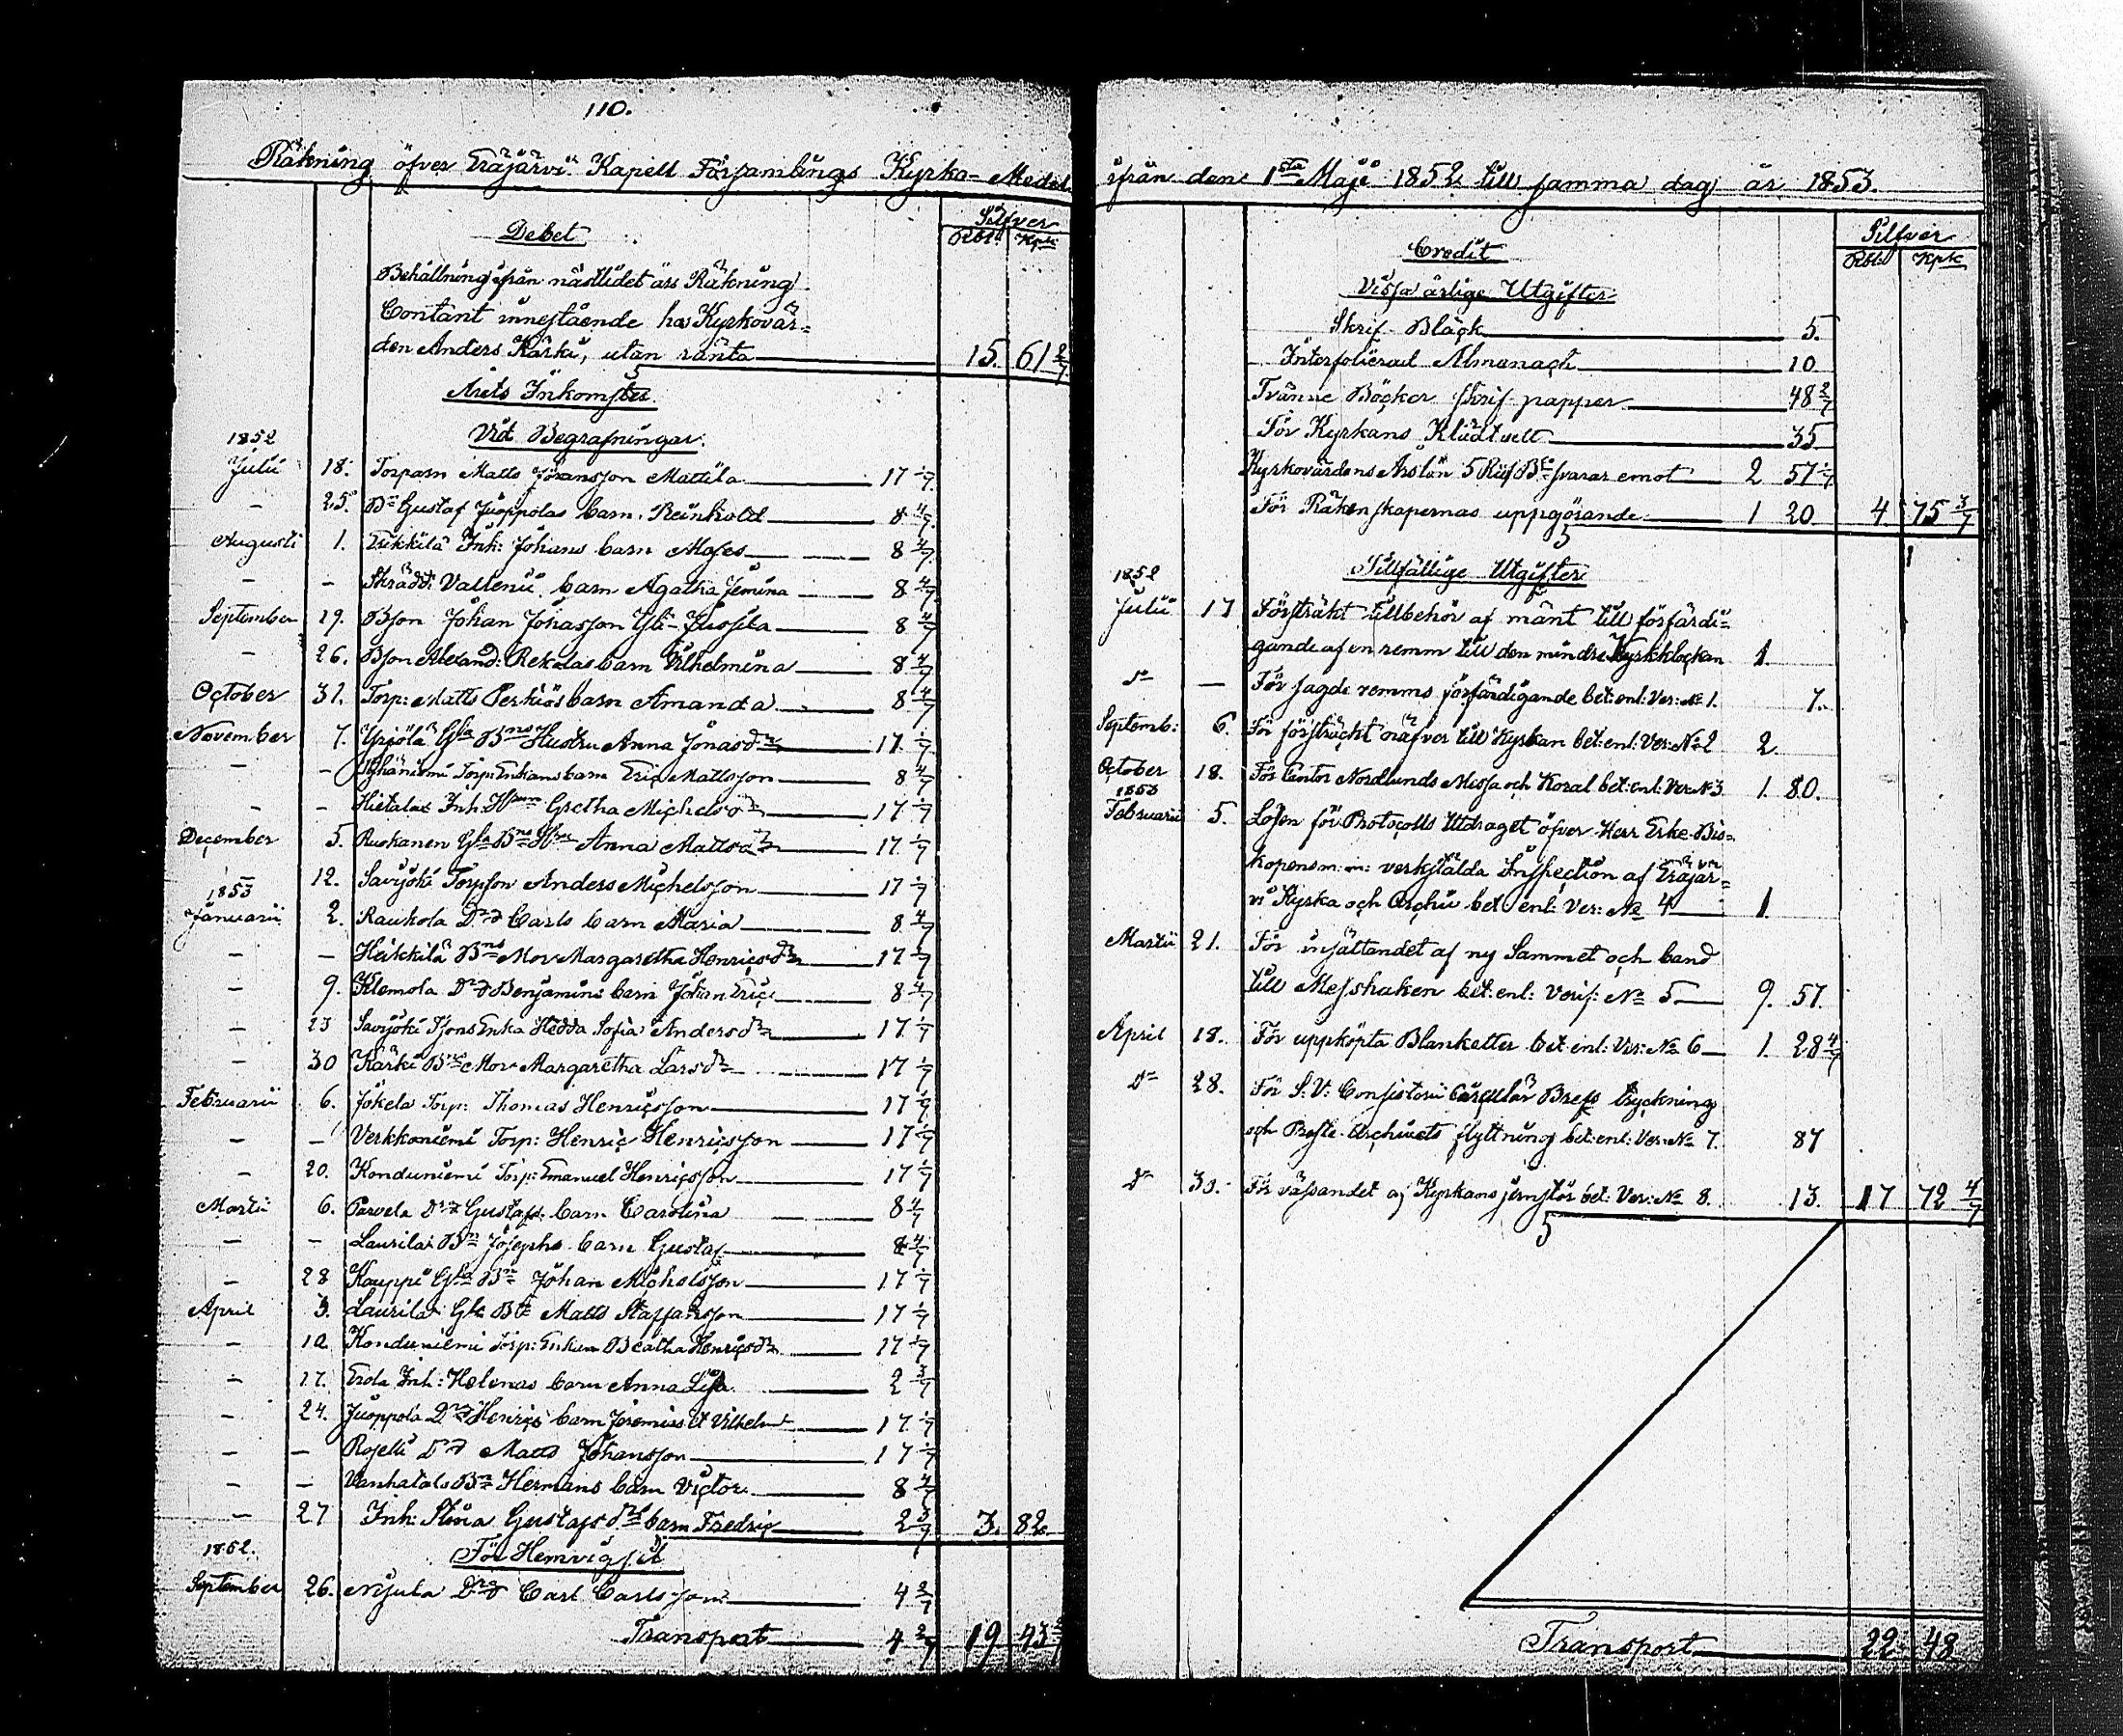 110.
Räkning öfver Eräjärvi Kapell Församlings Kyrko-Medel
Silfver
Debet Rbl. Kpk
Behållning ifrån nästlidet års Räkning
Contant innestående hos Kyrkovär=
den Anders Kärki, utan ränta 15. 61 2/7
Årets Inkomster.
Vid Begrafningar.
1852
Julii 18. Torparn Matts Jöransson Mattila 17 1/7
- 25. Dn Gustaf Juoppolas barn Reinhold 8 4/7
Augusti 1. Eukkilä Inh: Johans barn Moses 8 4/7
- - Skrädd: Vallenii barn Agatha Jemina 8 4/7
September 19. Bson Johan Johansson Yli-Jussila 8 4/7
- 26. Bson Alexand: Rekolas barn Vilhelmina 8 4/7
October 31. Torp: Matts Perkiös barn Amanda 8 4/7
November 7. Yrjölä Gla Bns Hustru Anna Jonasdr 17 1/7
- - Torp: Enkans barn Eric Mattsson 8 4/7
- - Hietalax Inh: Gretha Michelsdr 17 1/7
December 5. Ruokanen Gla Bns Anna Mattsdr 17 1/7
12. Savijoki Torpson Anders Michelsson 17 1/7
1853
Januarii 2. Raukola Drd Carls barn Maria 8 4/7
- - Heikkilä Bns Mor Margaretha Henricsdr 17 1/7
- 9. Klemola Drd Benjamins barn Johan Eric 8 4/7
- 23 Savijoki Enka Hedda Sofia Andersdr 17 1/7
- 30 Kärki Bns Mor Margaretha Larsdr 17 1/7
Februarii 6. Jokela Torp: Thomas Henricsson 17 1/7
- - Verkkoniemi Torp: Henric Henricsson 17 1/7
- 20. Konduniemi Torp: Emanuel Henricsson 17 1/7
Martii 6. Parvela Drd Gustafs barn Carolina 8 4/7
- - Laurilas Bn Josephs barn Gustaf 8 4/7
- 28 Kauppi Gla Bn Johan Michelsson 17 1/7
April 3. Laurilas Gla Bn Matts Staffansson 17 1/7
- 10 Konduniemi Torp: Enkan Beatha Henricsdr 17 1/7
- 17. Erola Inh: Helenas barn Anna Lisa 2 3/7
- 24. Juoppola Drd Henrics barn Jeremias et Vilhelm 17 1/7
- - Roselli Drd Matts Johansson 17 1/7
- - Vanhatalo Bn Hermans barn Victor 8 4/7
- 27 Inh: Stina Gustafsdrs barn Fredric 2 3/7 3. 82.
1852. För Hemvigsel
September 26. Nijula Drd Carl Carlsson 4 2/7
Transport 4 2/7 19 43 2/7
ifrån den 1sta Maji 1852 till samma dag år 1853.
Silfver
Credit Rbl. Kpk
Vissa årlige Utgifter
Skrif Bläck 5.
Interfolierad Almanach 10
Tvänne Böcker skrif papper 48 2/7
För Kyrkans Klädtvett 35
Kyrkovärdens Årslön 5 Ru Bco svarar emot 2 57 1/7
För Räkenskapernas uppgörande 1 20 4 75 3/7
Tillfällige Utgifter
1852
Julii 17 Försträkt tillbehör af mänt till förfärdi=
gande af en remm till den mindre Kyrkklockan 1.
dn — För sagde remms förfärdigande bet: enl: Ver: № 1. 7.
Septemb: 6. För försträckt till Kyrkan bet: enl: Ver: № 2 2
October 18. För Cantor Nordlunds Messa och Koral bet: enl: Ver: № 3 1. 80.
1853
Februarii 5. Lösen för Protocolls Utdraget öfver Herr Erke-Bis=
kopens m: m: verkstälda Inspection af Eräjär=
vi Kyrka och Archiv bet: enl: Ver: № 4 1.
Martii 21. För insättandet af ny Sammet och band
till Messhaken bet: enl: Verif: № 5 9. 57.
April 18. För uppköpta Blanketter bet: enl: Ver: № 6 1. 28 4/7
dn 28. För S: V: Consistorii Circulär Brefs tryckning
och Archivets flyttning bet: enl: Ver: № 7. 87
dn 30. För väfsandet af Kyrkans jernstör bet: Ver: № 8. 13. 17 72 4/7
Transport 22 48